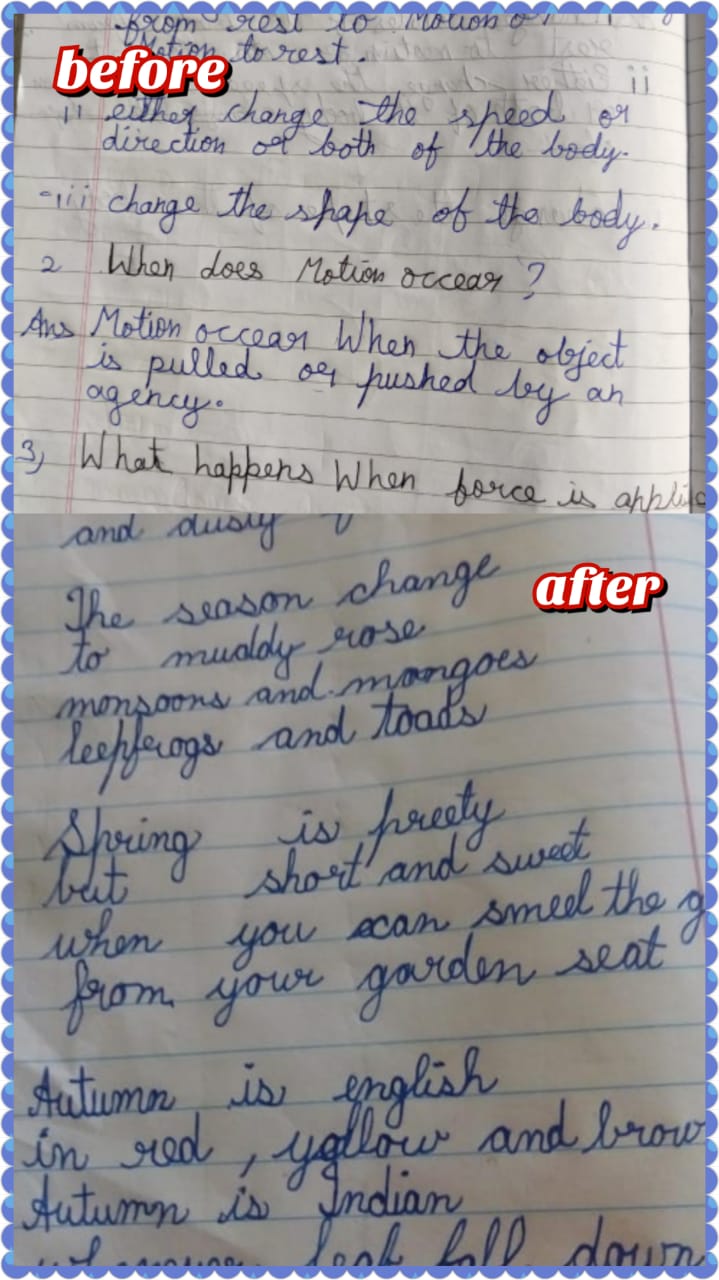 from rest to Motion or
Motion to rest.
before
ii either change the speed or
direction or both of the body.
iii change the shape of the body.
2 When does Motion occear?
Ans Motion occear When the object
is pulled or pushed by an
agency.
3) What happens When force is applie
and dusty
after
The season change
to muddy rose
monsoons and mangoes
leepfrogs and toads
Spring is preety
but short and sweet
when you can smeel the g
from your garden seat
Autumn is english
in red, yellow and brow
Autumn is Indian
leaf fall down